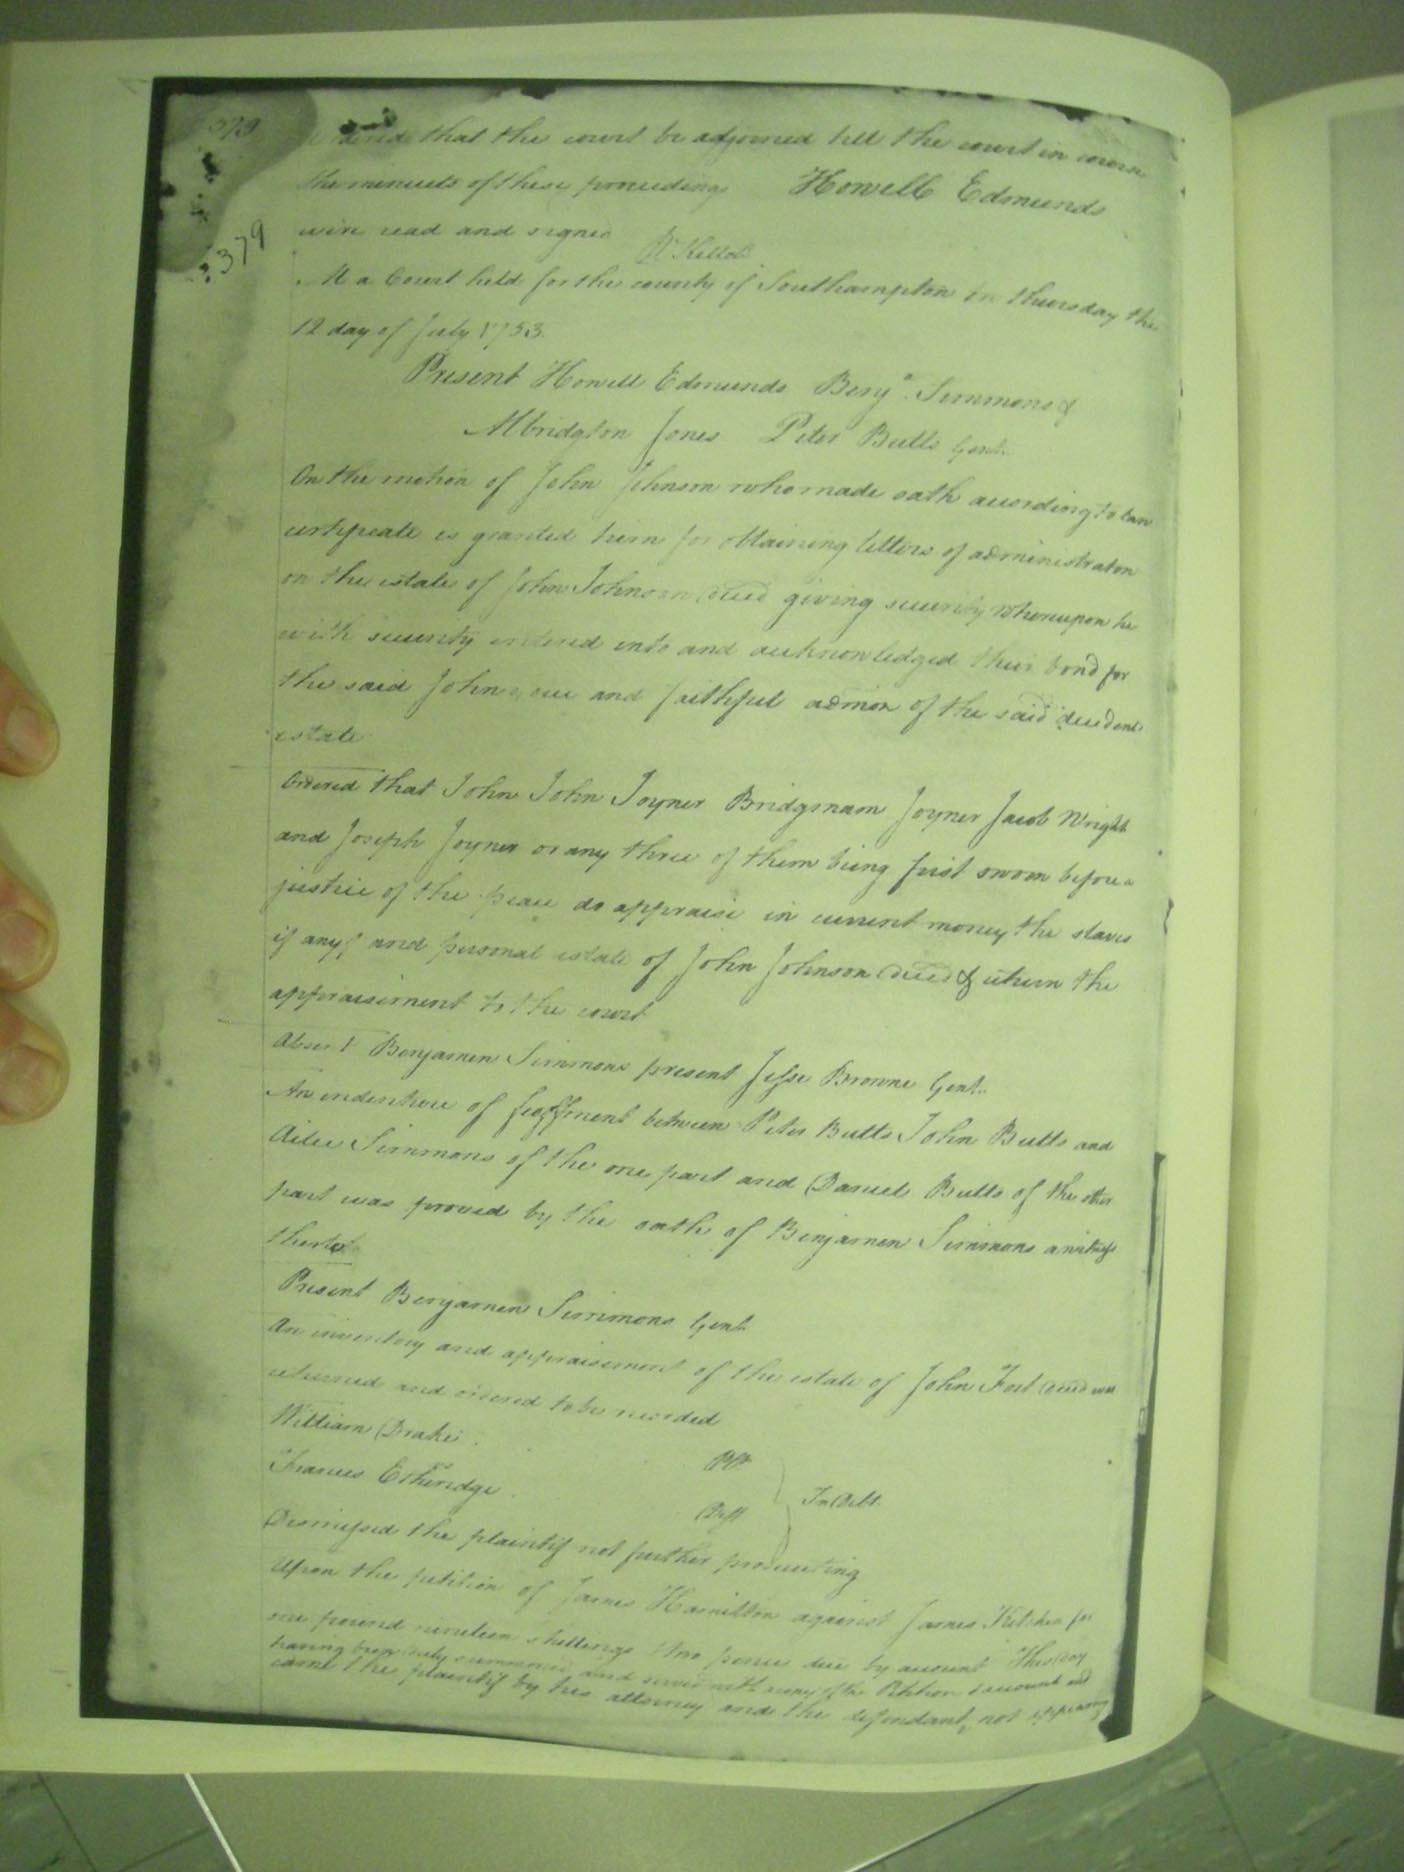 379
379
Ordered that the court be adjorned till the court in course
the minuets of these proceedings Howell Edmunds
were read and signed
At a Court held for the county of Southampton on thursday the
12 day of July 1753.
Present Howell Edmunds Benjᵃ. Simmons &
Albridgton Jones Peter Butts Gent.
On the motion of John Johnson who made oath according to law
certificate is granted him for obtaining letters of administraton
on the estate of John Johnson decd giving security whereupon he
with security entered into and acknowledged their bond for
the said John's due and faithful admon of the said decedents
estate
Ordered that John John Joyner Bridgmam Joyner Jacob Wright
and Joseph Joyner or any three of them being first sworn before a
justice of the peace do appraise in current money the slaves
if any & and personal estate of John Johnson decd & return the
appraisement to the court
Absent Benjamen Simmons present Jesse Browne Gent.
An indenture of feoffment between Peter Butts John Butts and
Ailee Simmons of the one part and Daniel Butts of the other
part was proved by the oath of Benjamen Simmons a witness
thereto
Present Benjamen Simmons Gent
An inventory and appraisement of the estate of John Fort decd was
returned and ordered to be recorded
William Drake Plt
vs In Debt.
Frances Etheridge Deft
Dismissed the plaintif not further prosecuting
Upon the petition of James Hamilton against James for
one pound nineteen shillings two pence due by account This day
came the plaintif by his attorney and the defendant, not appearing
having been duly summoned and served with a copy of the Petition & account and